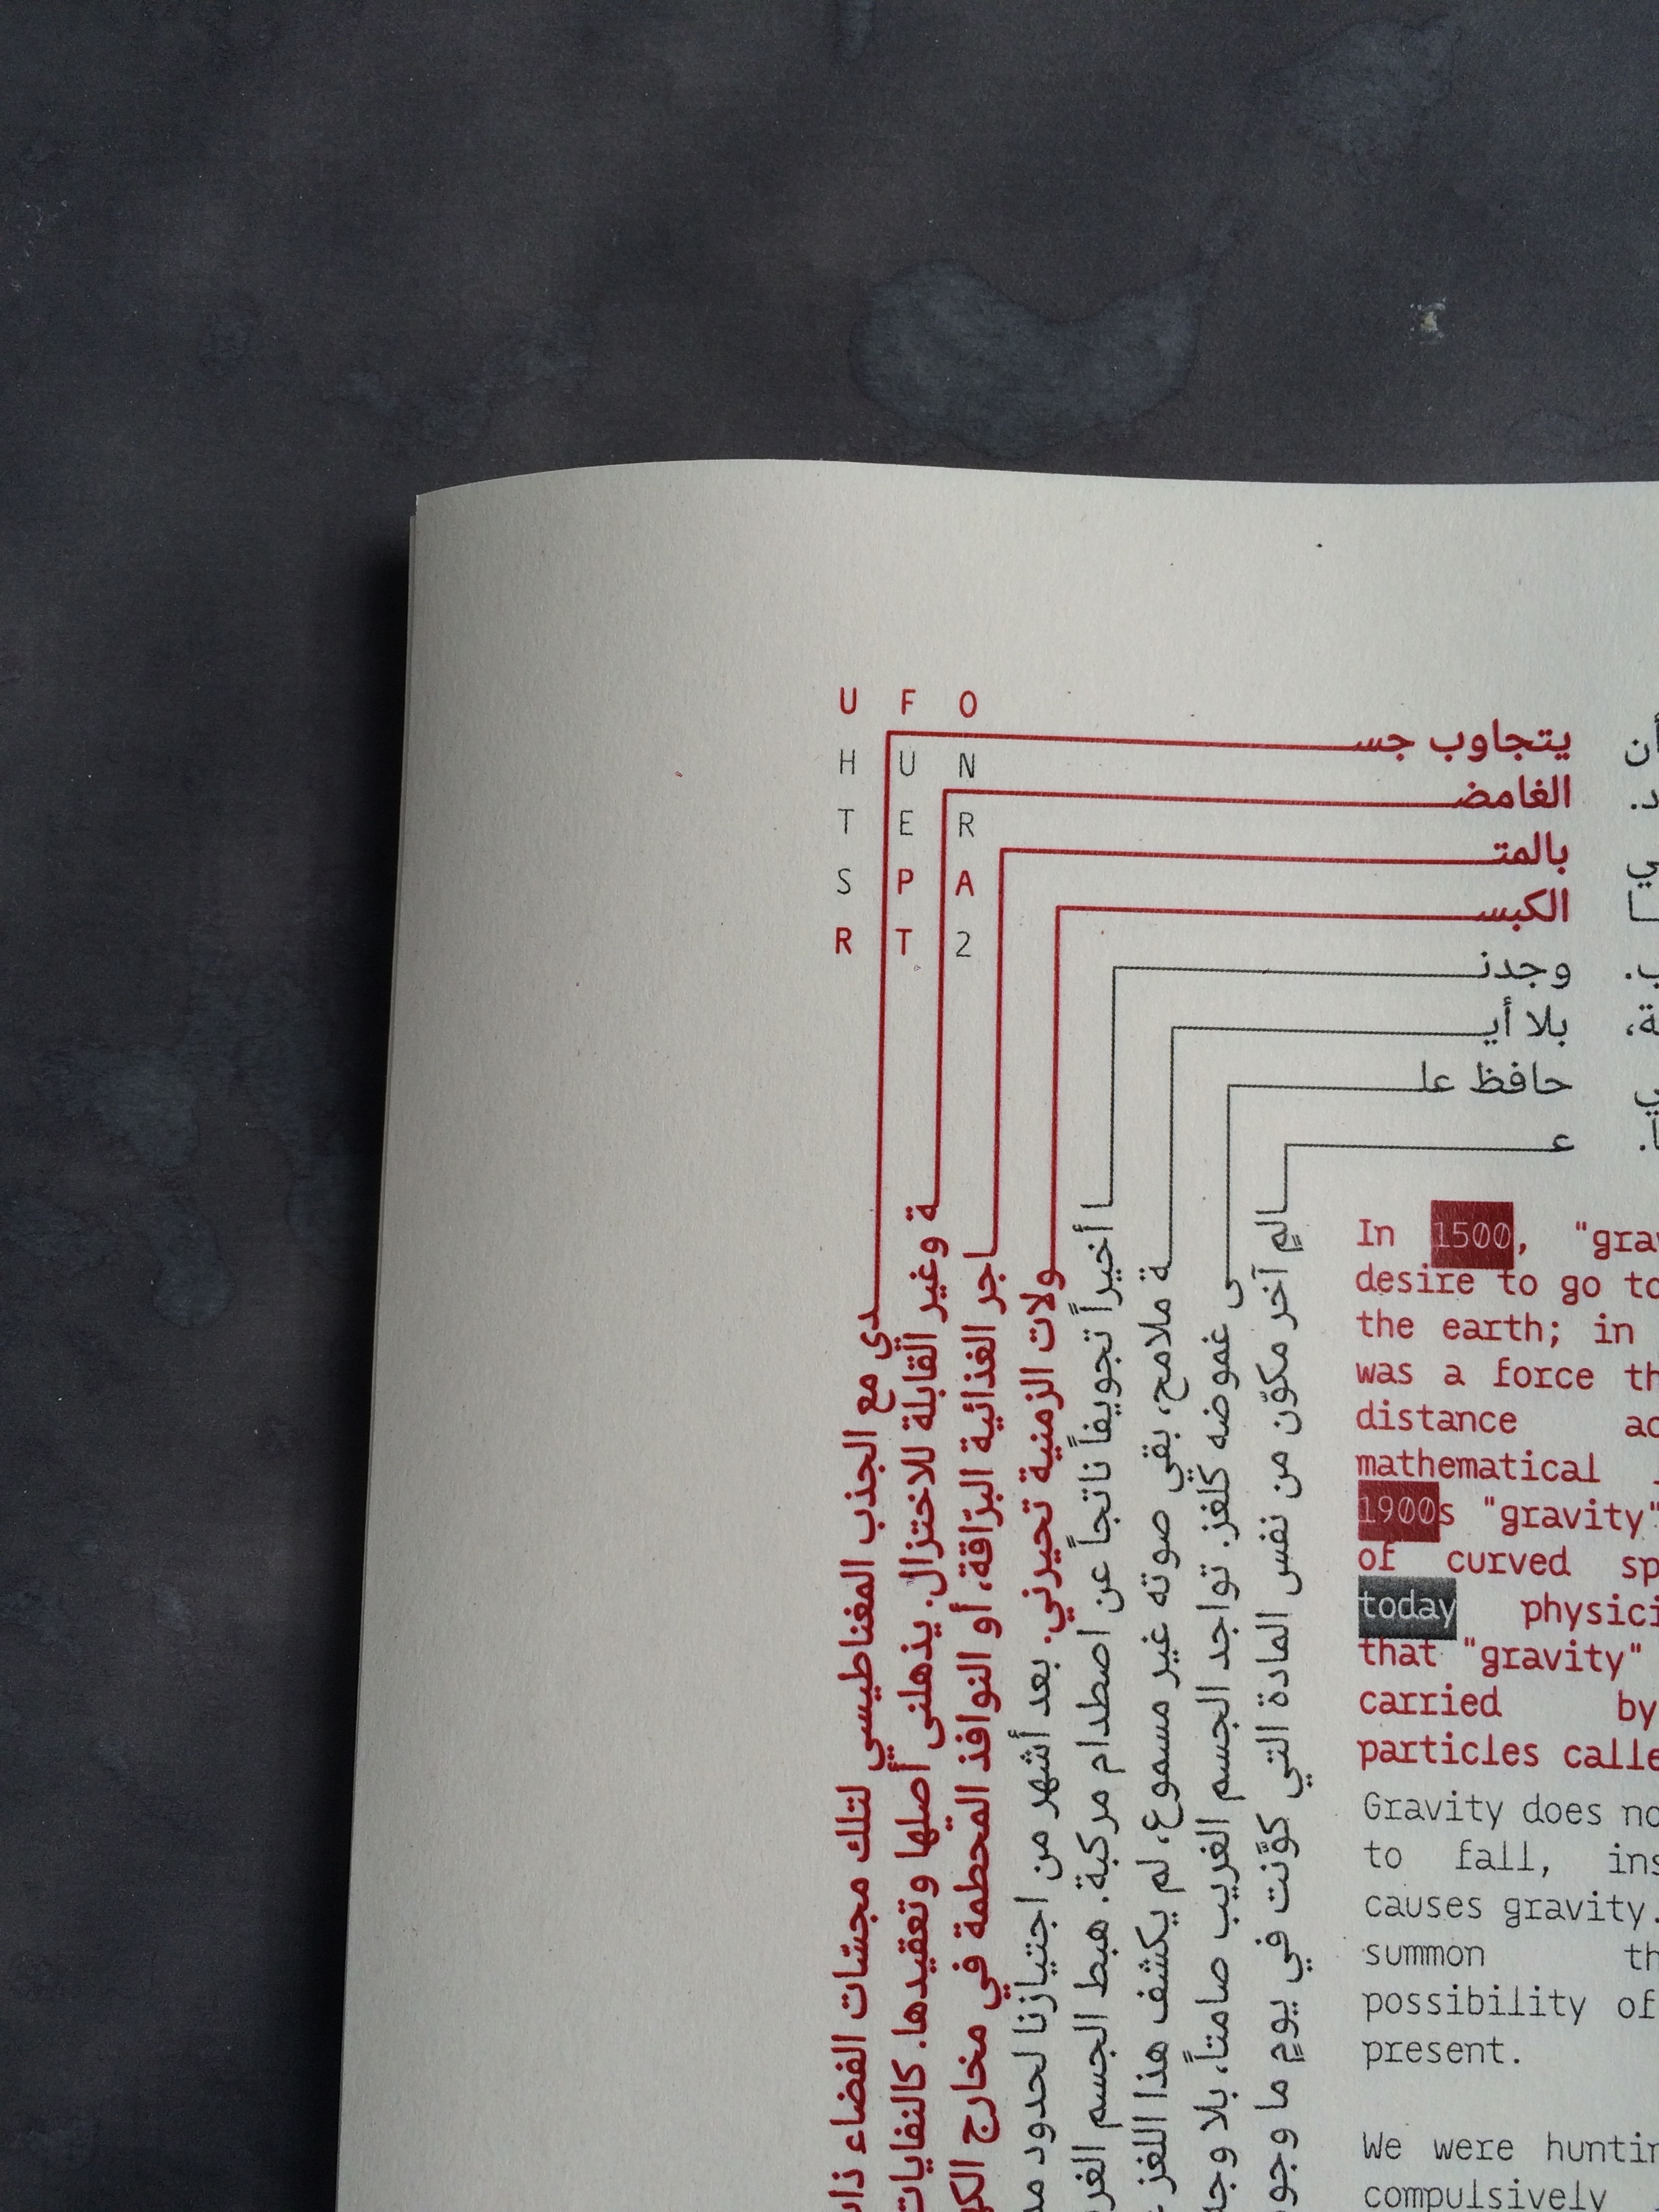 U F O
H U N
T E R
S P A
R T 2
يتجاوب جسدي مع الجذب المغناطيسي لتلك مجسّات الفضاء
الغامضة وغير القابلة للاختزال. يذهلني أصلها وتعقيدها. كالنفايات
بالمتاجر الغذائية البرّاقة، أو النوافذ المحطمة في مخارج
الكبسولات الزمنية تحيرني. بعد أشهر من اجتيازنا لحدود
وجدنا أخيراً تجويفاً ناتجاً عن اصطدام مركبة. هبط الجسم
بلا أية ملامح، بقي صوته غير مسموع، لم يكشف هذا اللغز
حافظ على غموضه كلغز. تواجد الجسم الغريب صامتاً، بلا
عالمٍ آخر مكوّن من نفس المادة التي كوَّنت في يومٍ ما
أن
In 1500,
desire to go
the earth; in
was a force
distance
mathematical
1900s "gravity"
of curved
today
that "gravity"
carried by
particles
Gravity does
to fall,
causes gravity.
summon
possibility of
present.
We were
compulsively